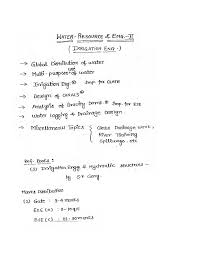 WATER - RESOURCE & ENG. - II
(IRRIGATION ENG.)
→ Global Distribution of water
→ Multi-purpose use of water
→ Irrigation Eng. Imp. for GATE
→ Design of canals
→ Analysis of Gravity Dams Imp. for ESE
→ Water logging & Drainage Design
→ Miscellaneous Topics
Cross Drainage work,
River Training
Spillways etc.
Ref. Books:
(1) Irrigation Engg & Hydraulic structure -
by S.K Garg.
Marks Distribution
(1) Gate :
ESE (O) :
ESE (C) :